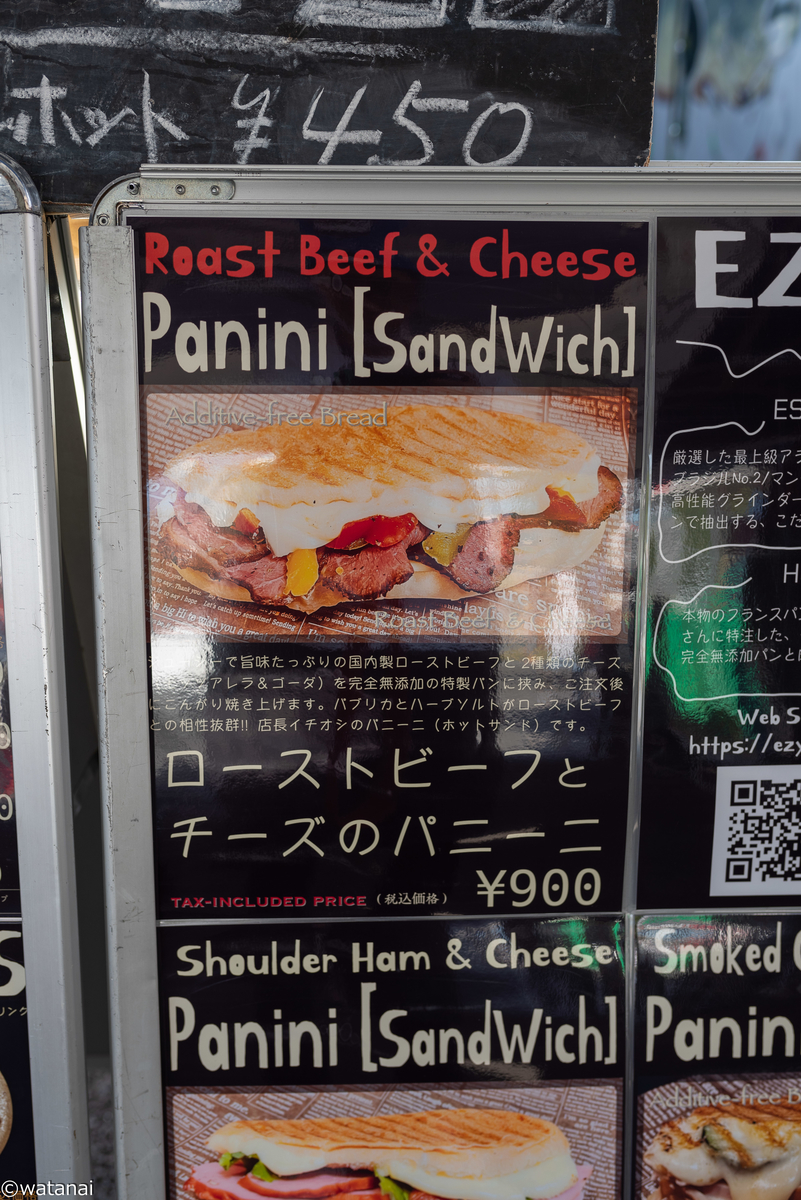 ホット ¥450
Roast Beef & Cheese
Panini [SandWich]
Additive-free Bread
Roast Beef & Cheese
で旨味たっぷりの国内製ローストビーフと2種類のチーズ
アレラ＆ゴーダ）を完全無添加の特製パンに挟み、ご注文後
にこんがり焼き上げます。パプリカとハーブソルトがローストビーフ
との相性抜群!! 店長イチオシのパニーニ（ホットサンド）です。
ローストビーフと
チーズのパニーニ
TAX-INCLUDED PRICE（税込価格）¥900
Shoulder Ham & Cheese
Panini [SandWich]
EZ
ES
厳選した最上級アラ
ブラジルNo.2/マン
高性能グラインダー
ンで抽出する、こだ
H
本物のフランスパン
さんに特注した、
完全無添加パンと
Web S
https://ezy
Smoked
Panin
Additive-free B
©watanai